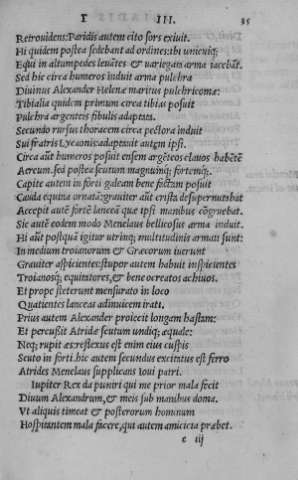 Γ III. 35
Retrouidens: Paridis autem cito sors exiuit.
Hi quidem postea sedebant ad ordines: ibi unicuiq;
Equi in altum pedes leuãtes & uariegata arma iacebãt.
Sed hic circa humeros induit arma pulchra
Diuinus Alexander Helenæ maritus pulchricomæ:
Tibialia quidem primum circa tibias posuit
Pulchra argenteis fibulis adaptata.
Secundo rursus thoracem circa pectora induit
Sui fratris Lycaonis: adaptauit autem ipsi.
Circa aũt humeros posuit ensem argẽteos clauos habẽtẽ
Aereum. sed postea scutum magnumq; fortemq;.
Capite autem in forti galeam bene factam posuit
Cauda equina ornatã: grauiter aũt crista desuper nutabat
Accepit autẽ fortẽ lanceã quæ ipsi manibus cõgruebat.
Sic autẽ eodem modo Menelaus bellicosus arma induit.
Hi aũt postquã igitur utrinq; multitudinis armati sunt:
In medium troianorum & Græcorum iuerunt
Grauiter aspicientes: stupor autem habuit inspicientes
Troianosq; equitatores, & bene ocreatos achiuos.
Et prope steterunt mensurato in loco
Quatientes lanceas adinuicem irati.
Prius autem Alexander proiecit longam hastam:
Et percussit Atridæ scutum undiq; æquale:
Neq; rupit æs: reflexus est enim eius cuspis
Scuto in forti. hic autem secundus excitatus est ferro
Atrides Menelaus supplicans Ioui patri.
Iupiter Rex da puniri qui me prior mala fecit
Diuum Alexandrum, & meis sub manibus doma.
Vt aliquis timeat & posterorum hominum
Hospitantem mala facere, qui autem amicitia præbet.
e iij